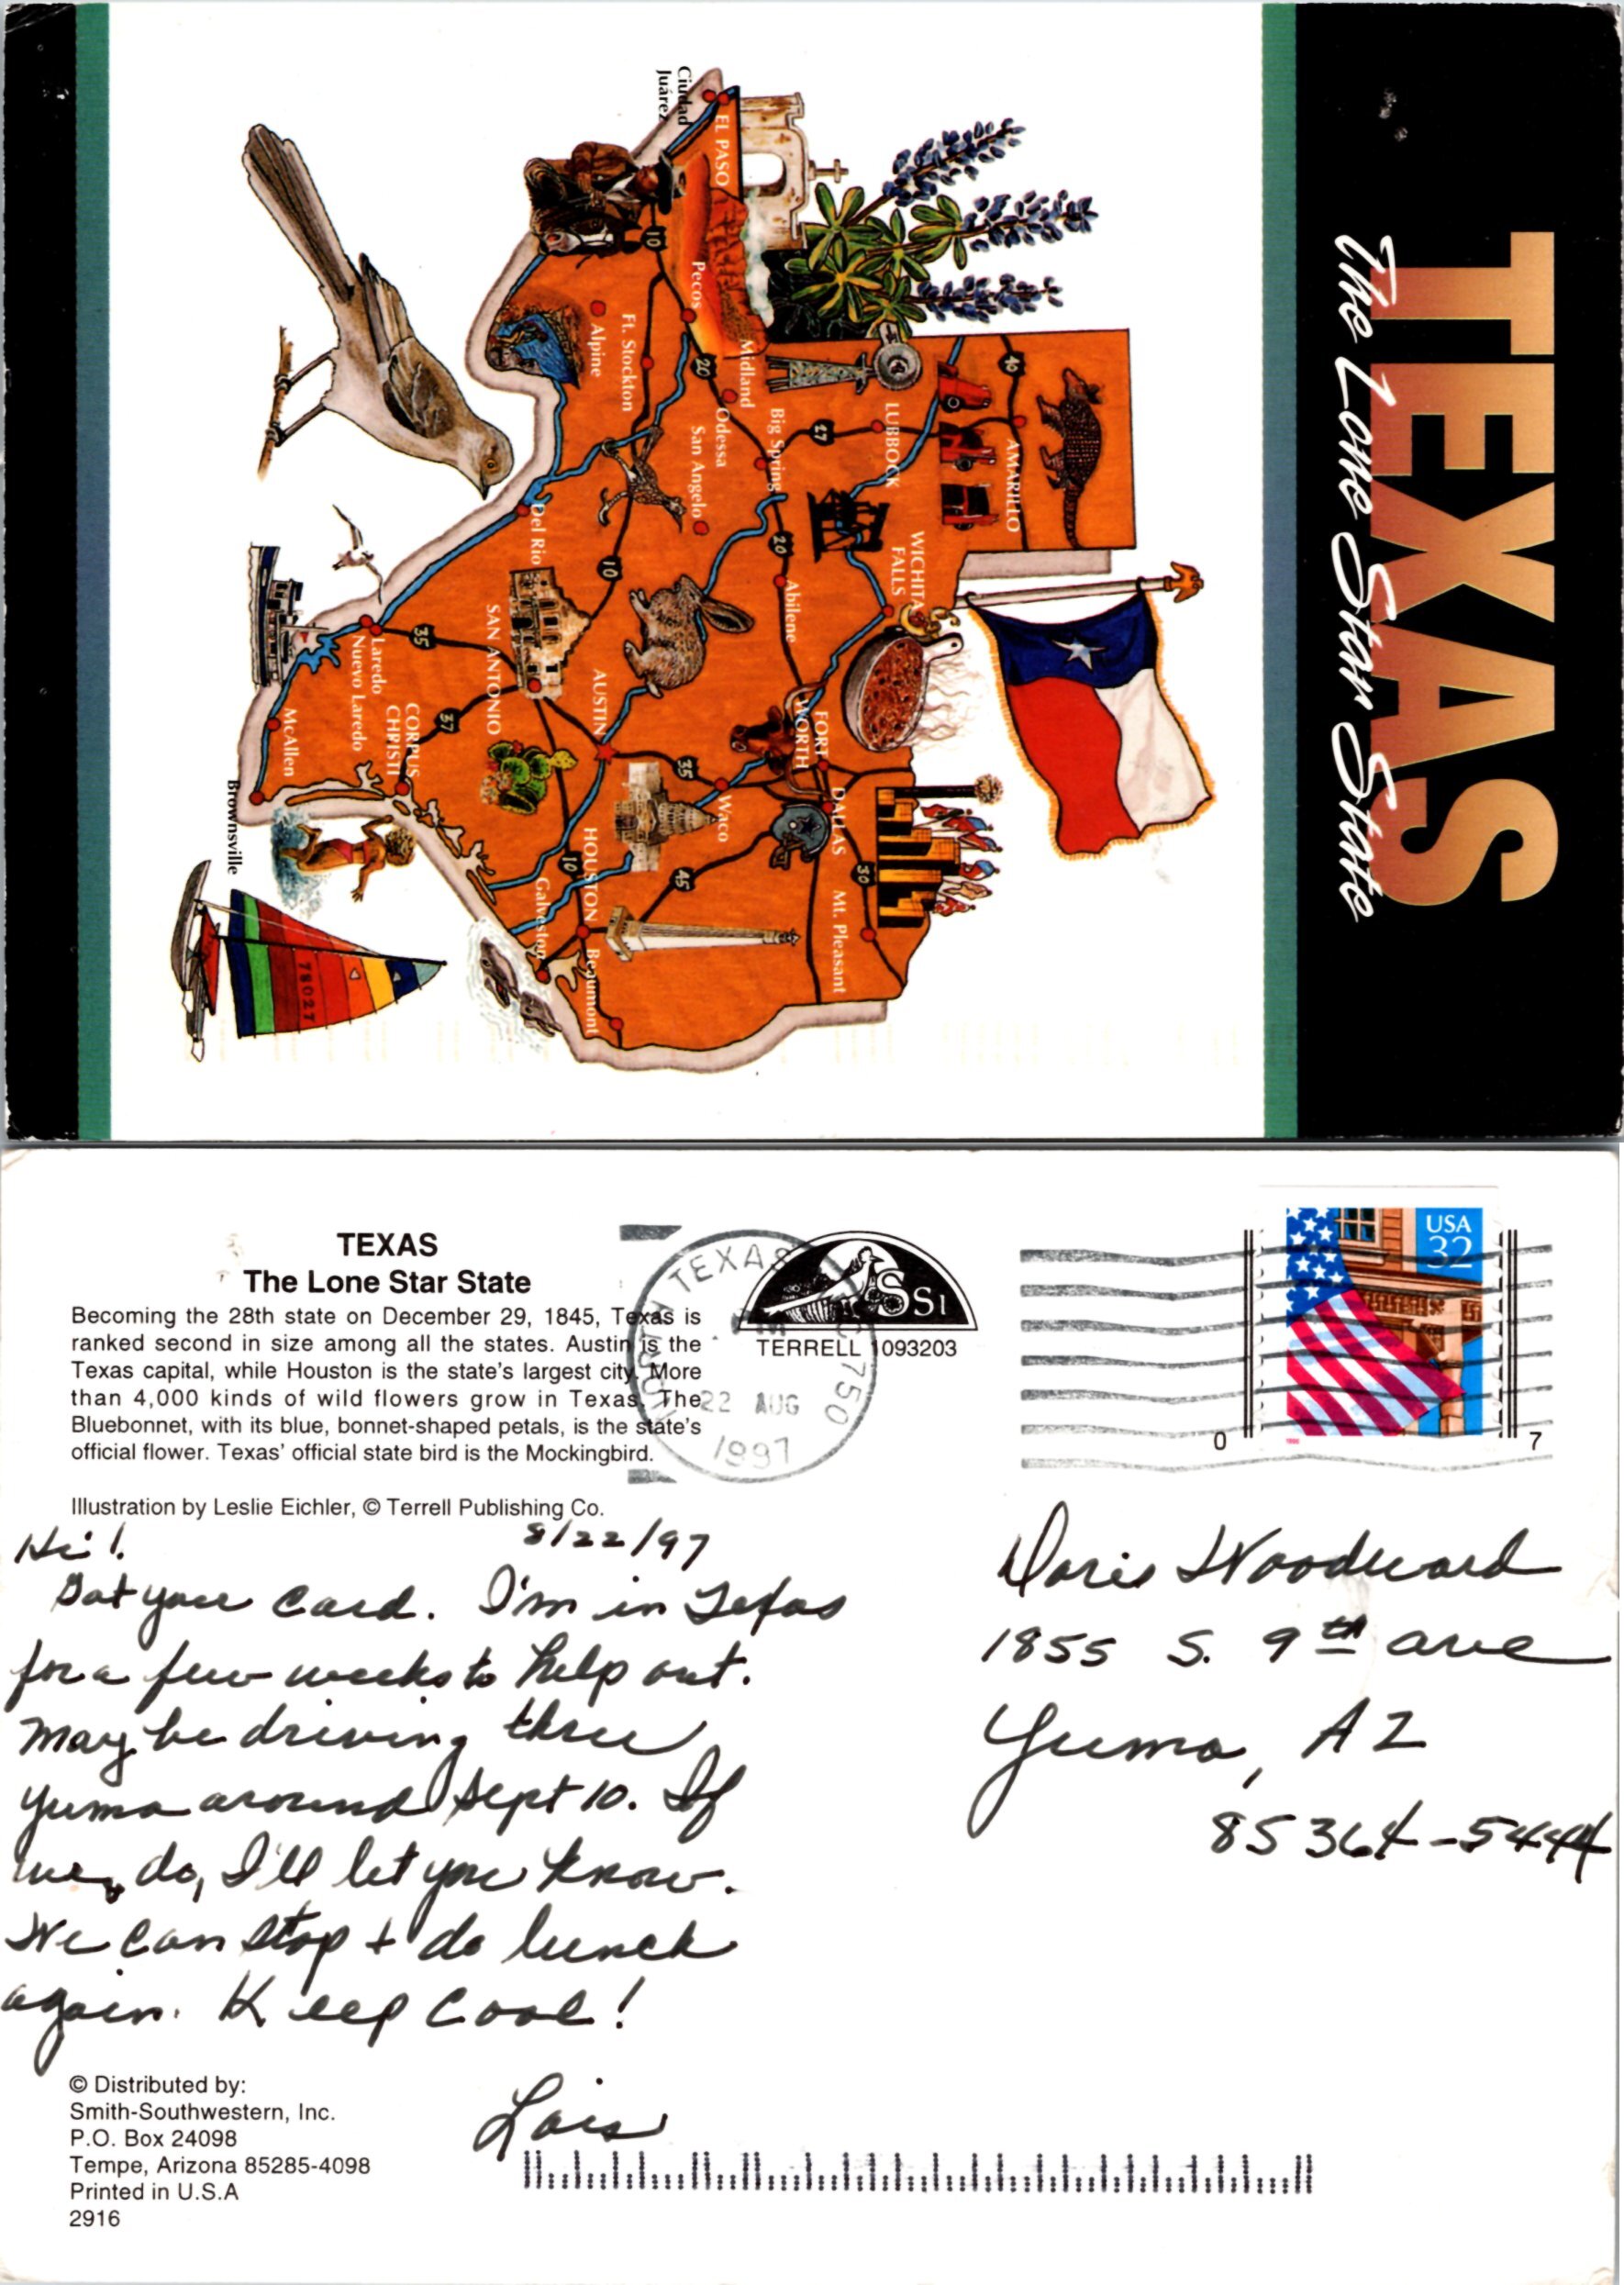 TEXAS
The Lone Star State
Ciudad
Juárez
EL PASO
10
Pecos
Alpine
Ft. Stockton
20
Midland
Odessa
San Angelo
Big Spring
27
LUBBOCK
40
AMARILLO
WICHITA
FALLS
20
Abilene
Del Rio
10
SAN ANTONIO
AUSTIN
35
Laredo
Nuevo Laredo
37
CORPUS
CHRISTI
McAllen
Brownsville
FORT
WORTH
DALLAS
35
Waco
30
Mt. Pleasant
45
10
HOUSTON
Galveston
Beaumont
78027
TEXAS
The Lone Star State
Becoming the 28th state on December 29, 1845, Texas is
ranked second in size among all the states. Austin is the
Texas capital, while Houston is the state's largest city. More
than 4,000 kinds of wild flowers grow in Texas. The
Bluebonnet, with its blue, bonnet-shaped petals, is the state's
official flower. Texas' official state bird is the Mockingbird.
Illustration by Leslie Eichler, © Terrell Publishing Co.
NORTH TEXAS 750
22 AUG
1997
SSI
TERRELL 1093203
USA
32
0 7
Hi! 8/22/97
Got your card. I'm in Texas
for a few weeks to help out.
May be driving three
Yuma around Sept 10. If
we do, I'll let you know.
We can stop + do lunch
again. Keep cool!
Lois
Doris Woodward
1855 S. 9th ave
Yuma, AZ
85364-5444
© Distributed by:
Smith-Southwestern, Inc.
P.O. Box 24098
Tempe, Arizona 85285-4098
Printed in U.S.A
2916